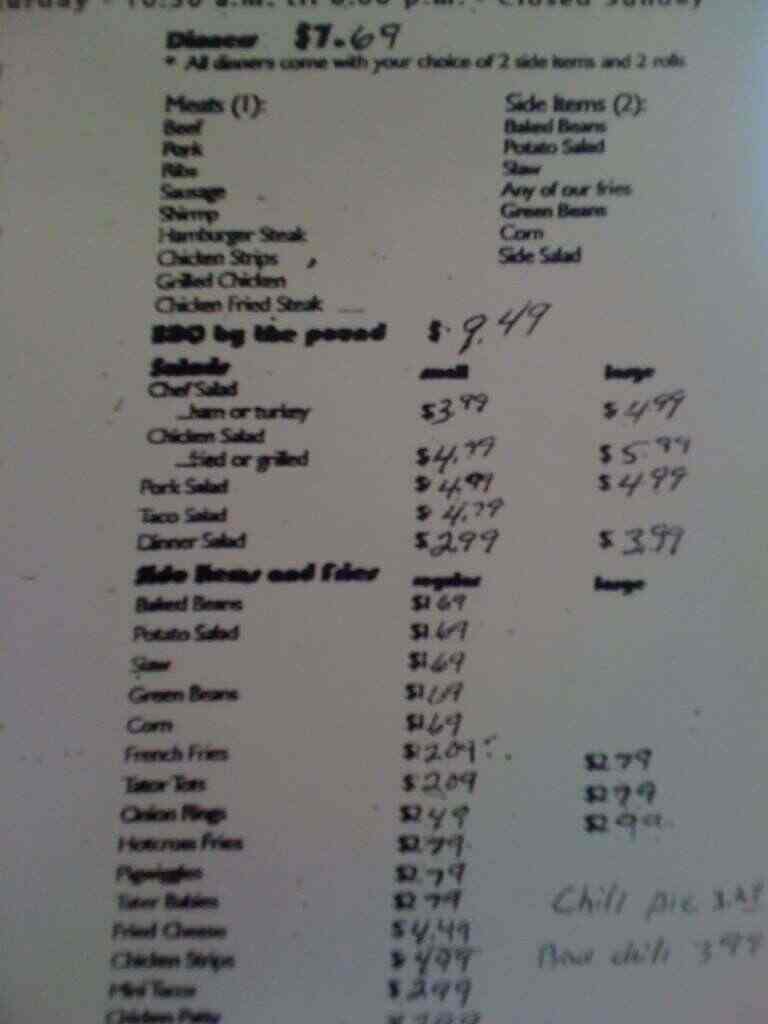 10:30 a.m. til 8:00 p.m. - Closed Sunday
Dinner $7.69
* All dinners come with your choice of 2 side items and 2 rolls
Meats (1): Side Items (2):
Beef Baked Beans
Pork Potato Salad
Ribs Slaw
Sausage Any of our fries
Shrimp Green Beans
Hamburger Steak Corn
Chicken Strips Side Salad
Grilled Chicken
Chicken Fried Steak
BBQ by the pound $9.49
Salads small large
Chef Salad
...ham or turkey $3.99 $4.99
Chicken Salad
...fried or grilled $4.99 $5.99
Pork Salad $4.99 $4.99
Taco Salad $4.99
Dinner Salad $2.99 $3.99
Side Items and Fries regular large
Baked Beans $1.69
Potato Salad $1.69
Slaw $1.69
Green Beans $1.69
Corn $1.69
French Fries $2.09 $2.79
Tator Tots $2.09 $2.79
Onion Rings $2.49 $2.99
Hotcross Fries $2.79
Pigwiggles $2.79
Tater Babies $2.79 Chili pie
Fried Cheese $4.49
Chicken Strips $4.99 Bowl chili 3.99
Mini Tacos $2.99
Chicken Patty